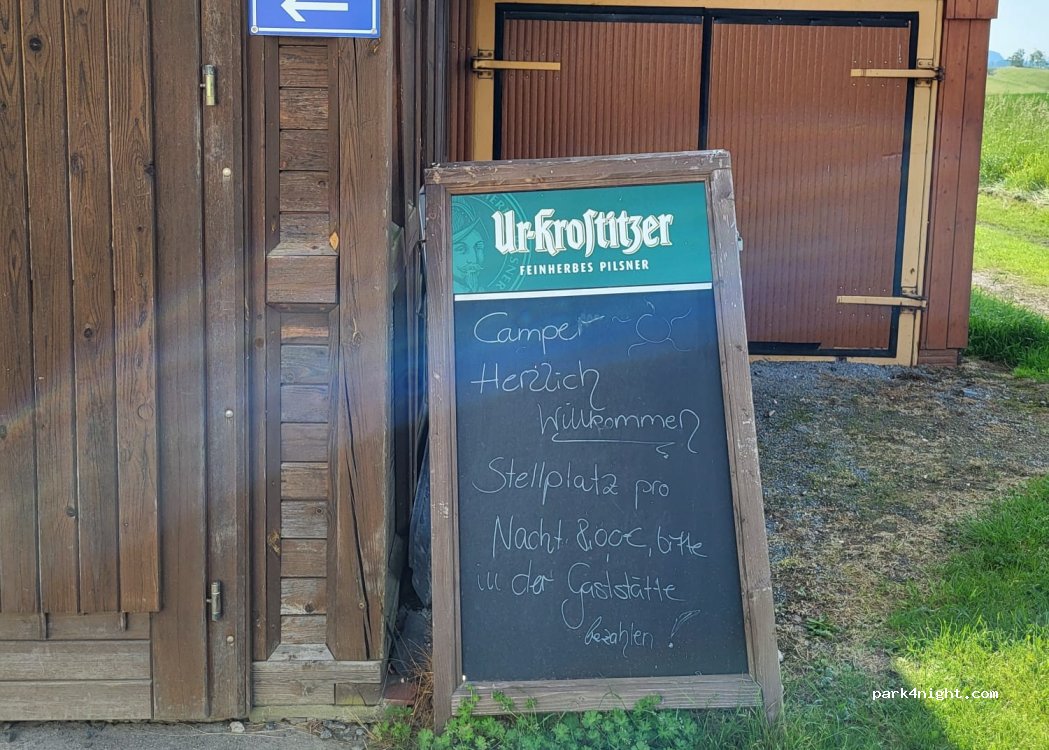 Ur-Krostitzer
FEINHERBES PILSNER
Camper
Herzlich
Willkommen
Stellplatz pro
Nacht 8,00€, bitte
in der Gaststätte
bezahlen!
park4night.com